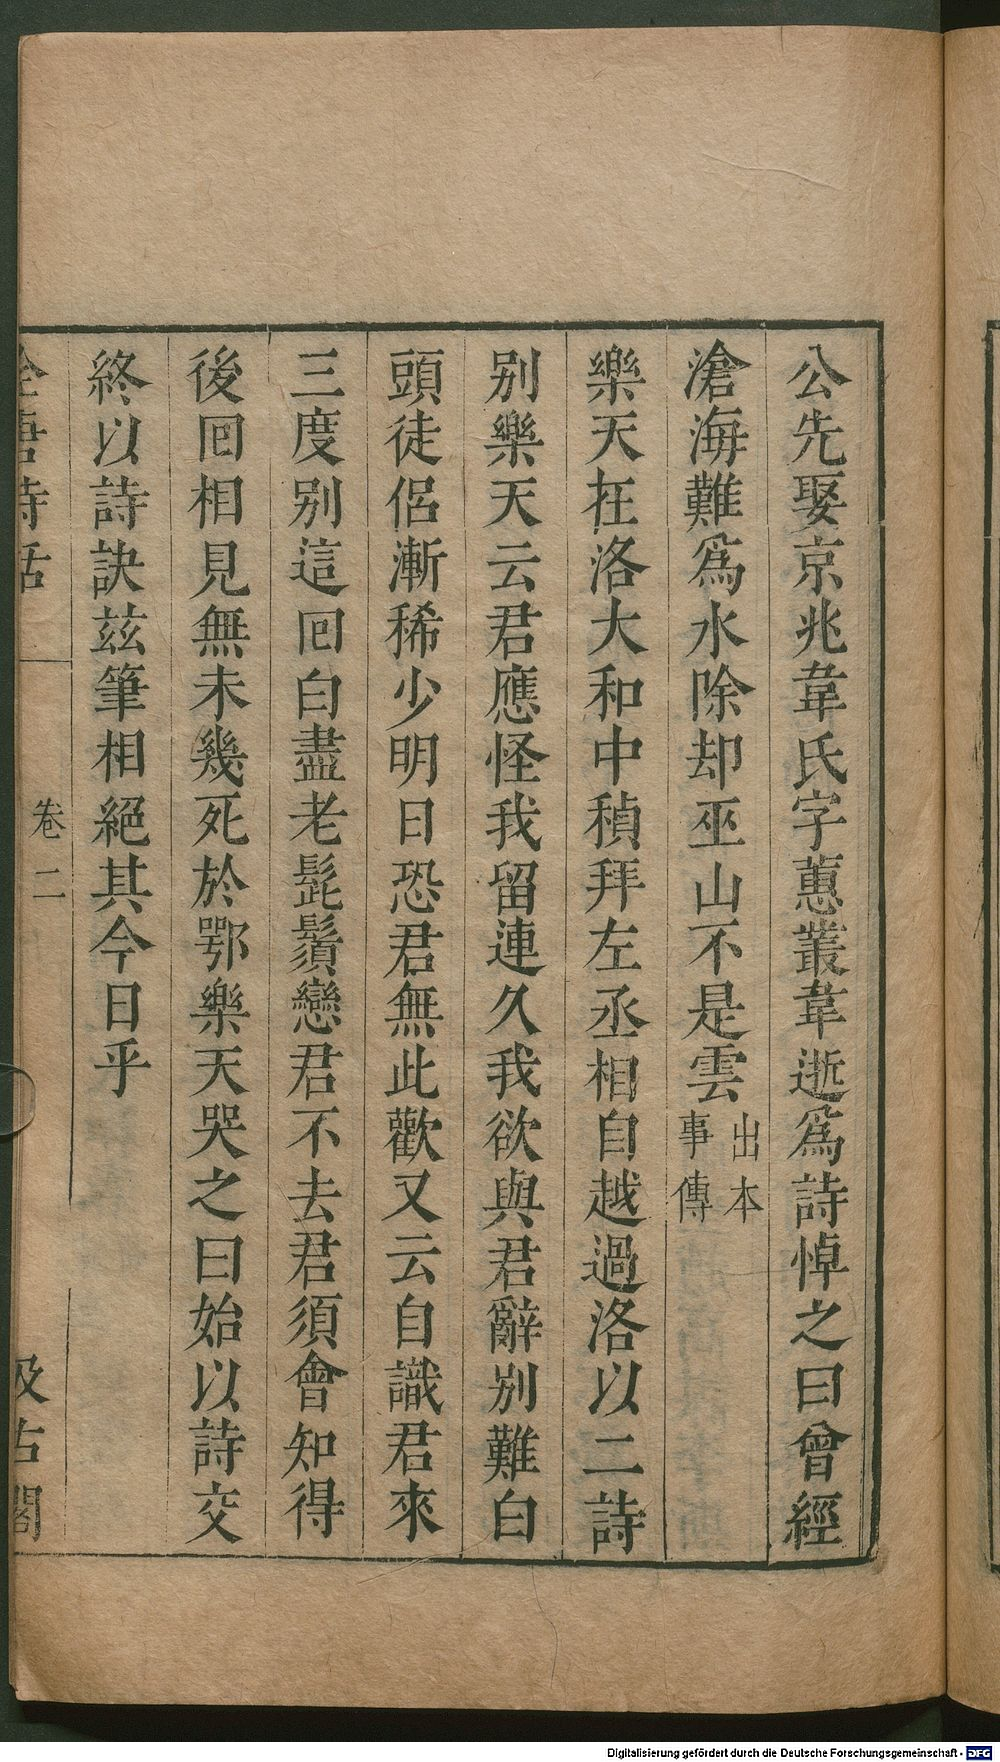 公先娶京兆韋氏字蕙叢韋逝爲詩悼之曰曾經
滄海難爲水除却巫山不是雲出本事傳
樂天在洛大和中稹拜左丞相自越過洛以二詩
别樂天云君應怪我留連久我欲與君辭别難白
頭徒侣漸稀少明日恐君無此歡又云自識君來
三度别這回白盡老髭鬚戀君不去君須會知得
後回相見無未幾死於鄂樂天哭之曰始以詩交
終以詩訣兹筆相絕其今日乎
全唐詩話
卷二
汲古閣
Digitalisierung gefördert durch die Deutsche Forschungsgemeinschaft - DFG